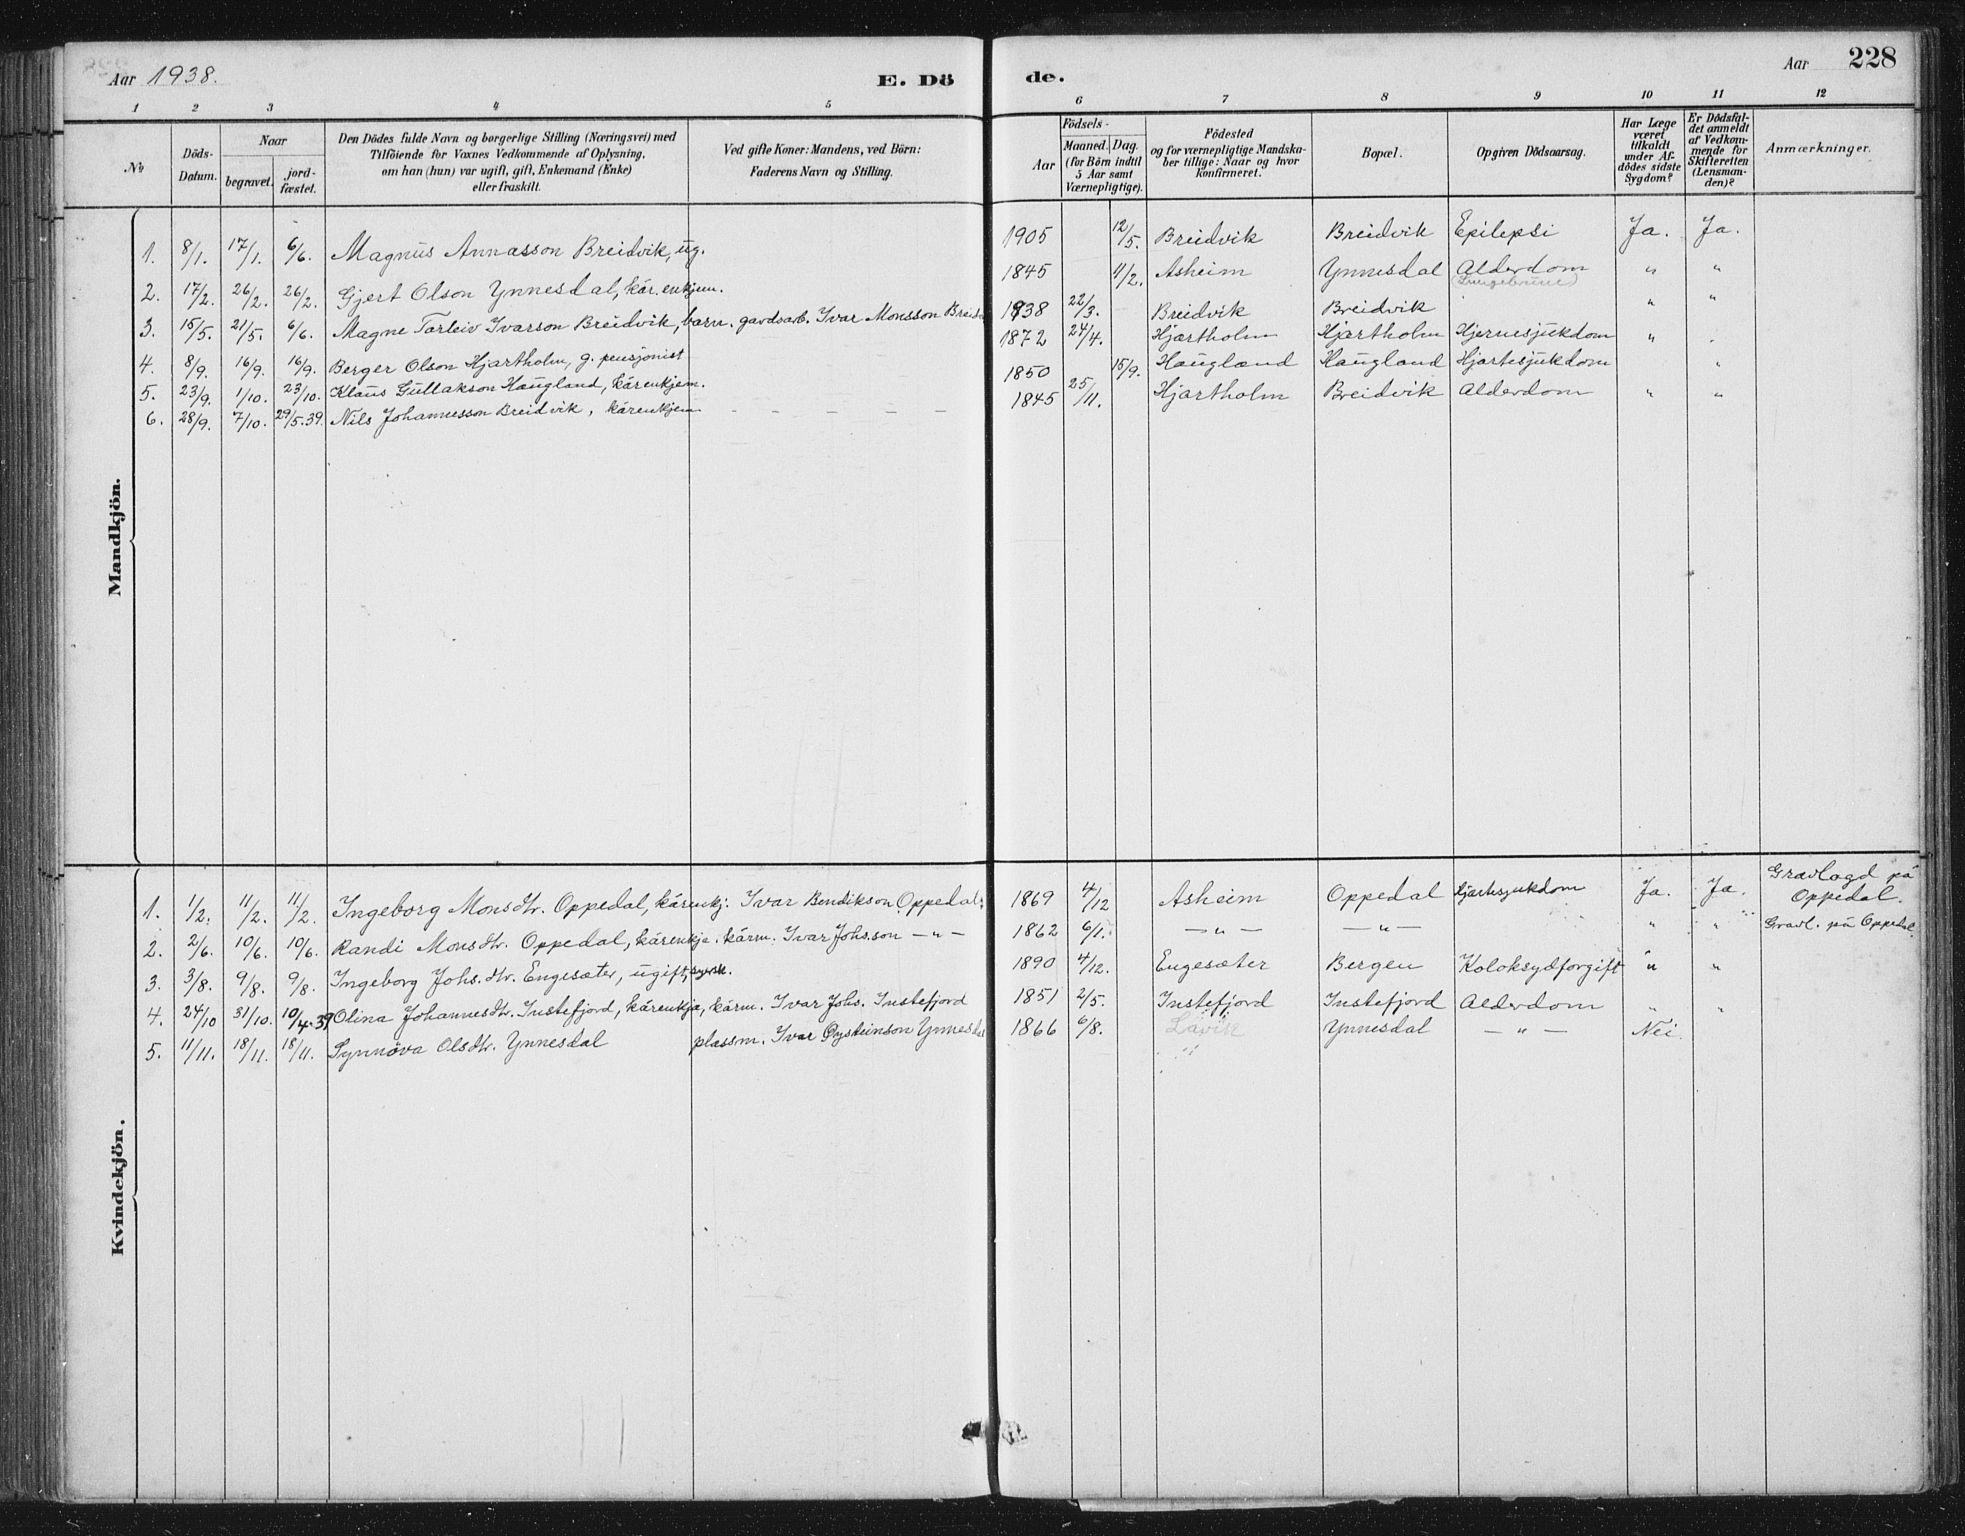 Aar 1938.
E. Dö de.
Aar 228
1 2 3 4 5 6 7 8 9 10 11 12
No
Döds-Datum.
Naar
begravet.
jord-fæstet.
Den Dödes fulde Navn og borgerlige Stilling (Næringsvei) med
Tilföiende for Voxnes Vedkommende af Oplysning,
om han (hun) var ugift, gift, Enkemand (Enke)
eller fraskilt.
Ved gifte Koner: Mandens, ved Börn:
Faderens Navn og Stilling.
Födsels-
Aar
Maaned. Dag.
(for Börn indtil
5 Aar samt
Værnepligtige).
Födested
og for værnepligtige Mandska-
ber tillige: Naar og hvor
konfirmeret.
Bopæl.
Opgiven Dödsaarsag.
Har Læge
været
tilkaldt
under Af-
dödes sidste
Sygdom?
Er Dödsfal-
det anmeldt
af Vedkom-
mende for
Skifteretten
(Lensman-
den)?
Anmærkninger.
Mandkjön.
1. 8/1. 17/1. 6/6. Magnus Annasson Breidvik, ug. 1905 12/5. Breidvik Breidvik Epilepsi Ja. Ja.
2. 17/2. 26/2. 26/2. Gjert Olson Ynnesdal, kår.enkjem. 1845 11/2. Asheim Ynnesdal Alderdom " "
3. 15/5. 21/5. 6/6. Magne Torleiv Ivarson Breidvik, barn. gardsarb. Ivar Monsson 1938 22/3. Breidvik Breidvik " "
4. 8/9. 16/9. 16/9. Berger Olson Hjartholm, g. pensjonist 1872 24/4. Hjartholm Hjartholm Hjernesjukdom "
5. 23/9. 1/10. 23/10. Klaus Gullakson Haugland, kårenkjem. 1850 15/9. Haugland Haugland Hjartesjukdom "
6. 28/9. 7/10. 29/5.39. Nils Johannesson Breidvik, kårenkjem – – – – – – 1845 25/11. Hjartholm Breidvik Alderdom " "
Kvindekjön.
1. 1/2. 11/2. 11/2. Ingeborg Monsdtr. Oppedal, kårenkj. Ivar Bendikson Oppedal. 1869 4/12 Asheim Oppedal Hjartesjukdom Ja. Ja. Gravlagd på Oppedal.
2. 2/6. 10/6. 10/6. Randi Monsdtr. Oppedal, kårenkje. kårm. Ivar Johs.son – " – 1862 6/1. – " – – " – " " Gravl. på Oppedal.
3. 3/8. 9/8. 9/8. Ingeborg Johs.dtr. Engesæter, ugift, 1890 4/12. Engesæter Bergen Koloksydforgift " "
4. 24/10 31/10. 10/4.39 Olina Johannesdtr. Instefjord, kårenkja, kårm. Ivar Johs. Instefjord 1851 2/5. Instefjord Instefjord Alderdom " "
5. 11/11. 18/11. 18/11. Synnöva Olsdtr. Ynnesdal plassm. Ivar Øysteinson Ynnesdal 1866 6/8. Lavik Ynnesdal – " – Nei.